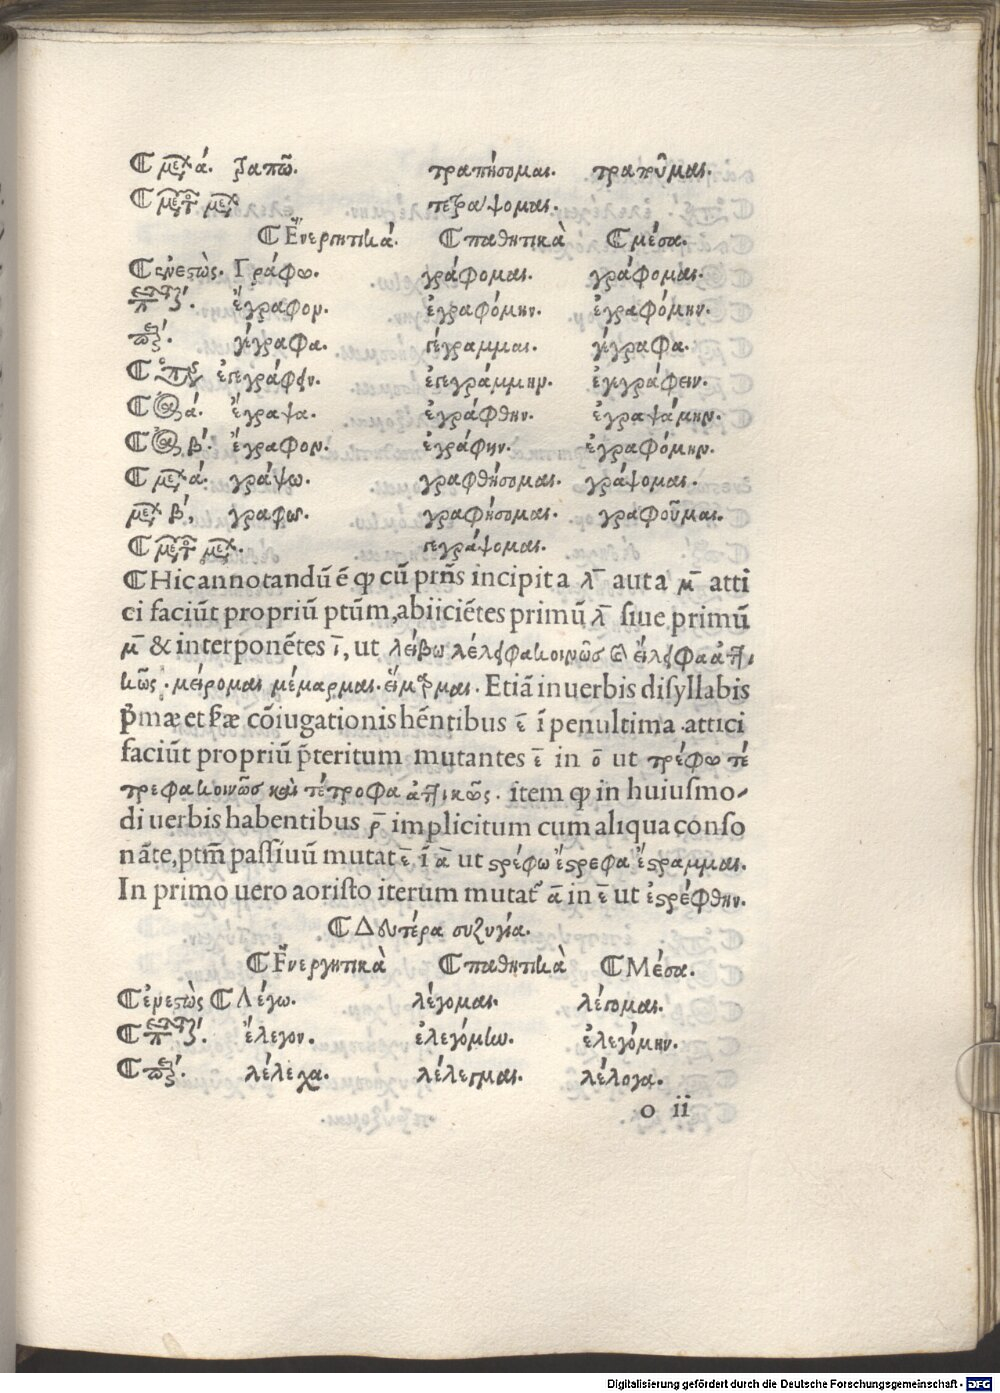 ταπῶ. τραπήσομαι. τραποῦμαι.
τετράψομαι.
Ἐνεργητικά. παθητικὰ μέσα.
ἐνεστὼς. Γράφω. γράφομαι. γράφομαι.
ἔγραφον. ἐγραφόμην. ἐγραφόμην.
γέγραφα. γέγραμμαι. γέγραφα.
ἐγεγράφειν. ἐγεγράμμην. ἐγεγράφειν.
ά. ἔγραψα. ἐγράφθην. ἐγραψάμην.
β΄. ἔγραφον. ἐγράφην. ἐγραφόμην.
ά. γράψω. γραφθήσομαι. γράψομαι.
β΄, γραφῶ. γραφήσομαι. γραφοῦμαι.
γεγράψομαι.
Hic annotandū ē ꝙ cū prn̄s incipit a λ̄ aut a μ̄ atti
ci faciūt propriū ptūm, abiiciētes primū λ̄ siue primū
μ̄ & interponētes ῑ, ut λείβω λέλειφα κοινῶσ εἴλειφα ἀττι
κῶς. μείρομαι μέμαρμαι. εἵμαρμαι. Etiā in uerbis disyllabis
p̄mæ et sc̄æ cōiugationis hēntibus ε̄ ī penultima attici
faciūt propriū p̄teritum mutantes ε̄ in ō ut τρέφω τέ
τρεφα κοινῶσ καὶ τέτροφα ἀττικῶς. item ꝙ in huiusmo-
di uerbis habentibus ρ̄ implicitum cum aliqua conso
nāte, ptm̄ passiuū mutat ε̄ ī ᾱ ut ϛρέφω ἔϛρεφα ἔϛραμμαι.
In primo uero aoristo iterum mutat᷑ ᾱ in ε̄ ut ἐϛρέφθην.
Δευτέρα συζυγία.
Ἐνεργητικὰ παθητικὰ Μέσα.
ἐνεϛὼς Λέγω. λέγομαι. λέγομαι.
ἔλεγον. ἐλεγόμην. ἐλεγόμην.
λέλεχα. λέλεγμαι. λέλογα.
o ii
Digitalisierung gefördert durch die Deutsche Forschungsgemeinschaft - DFG